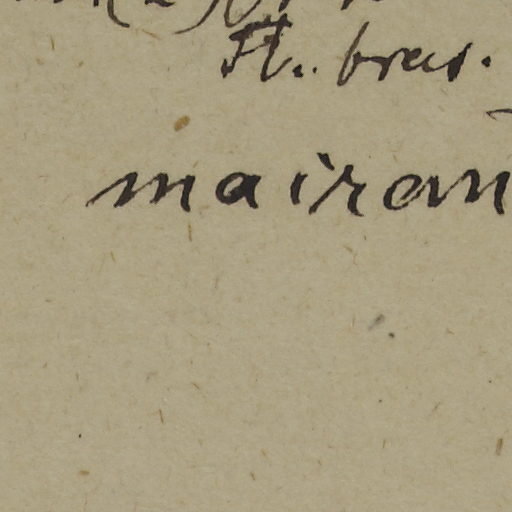 Fl. bras.
mairan